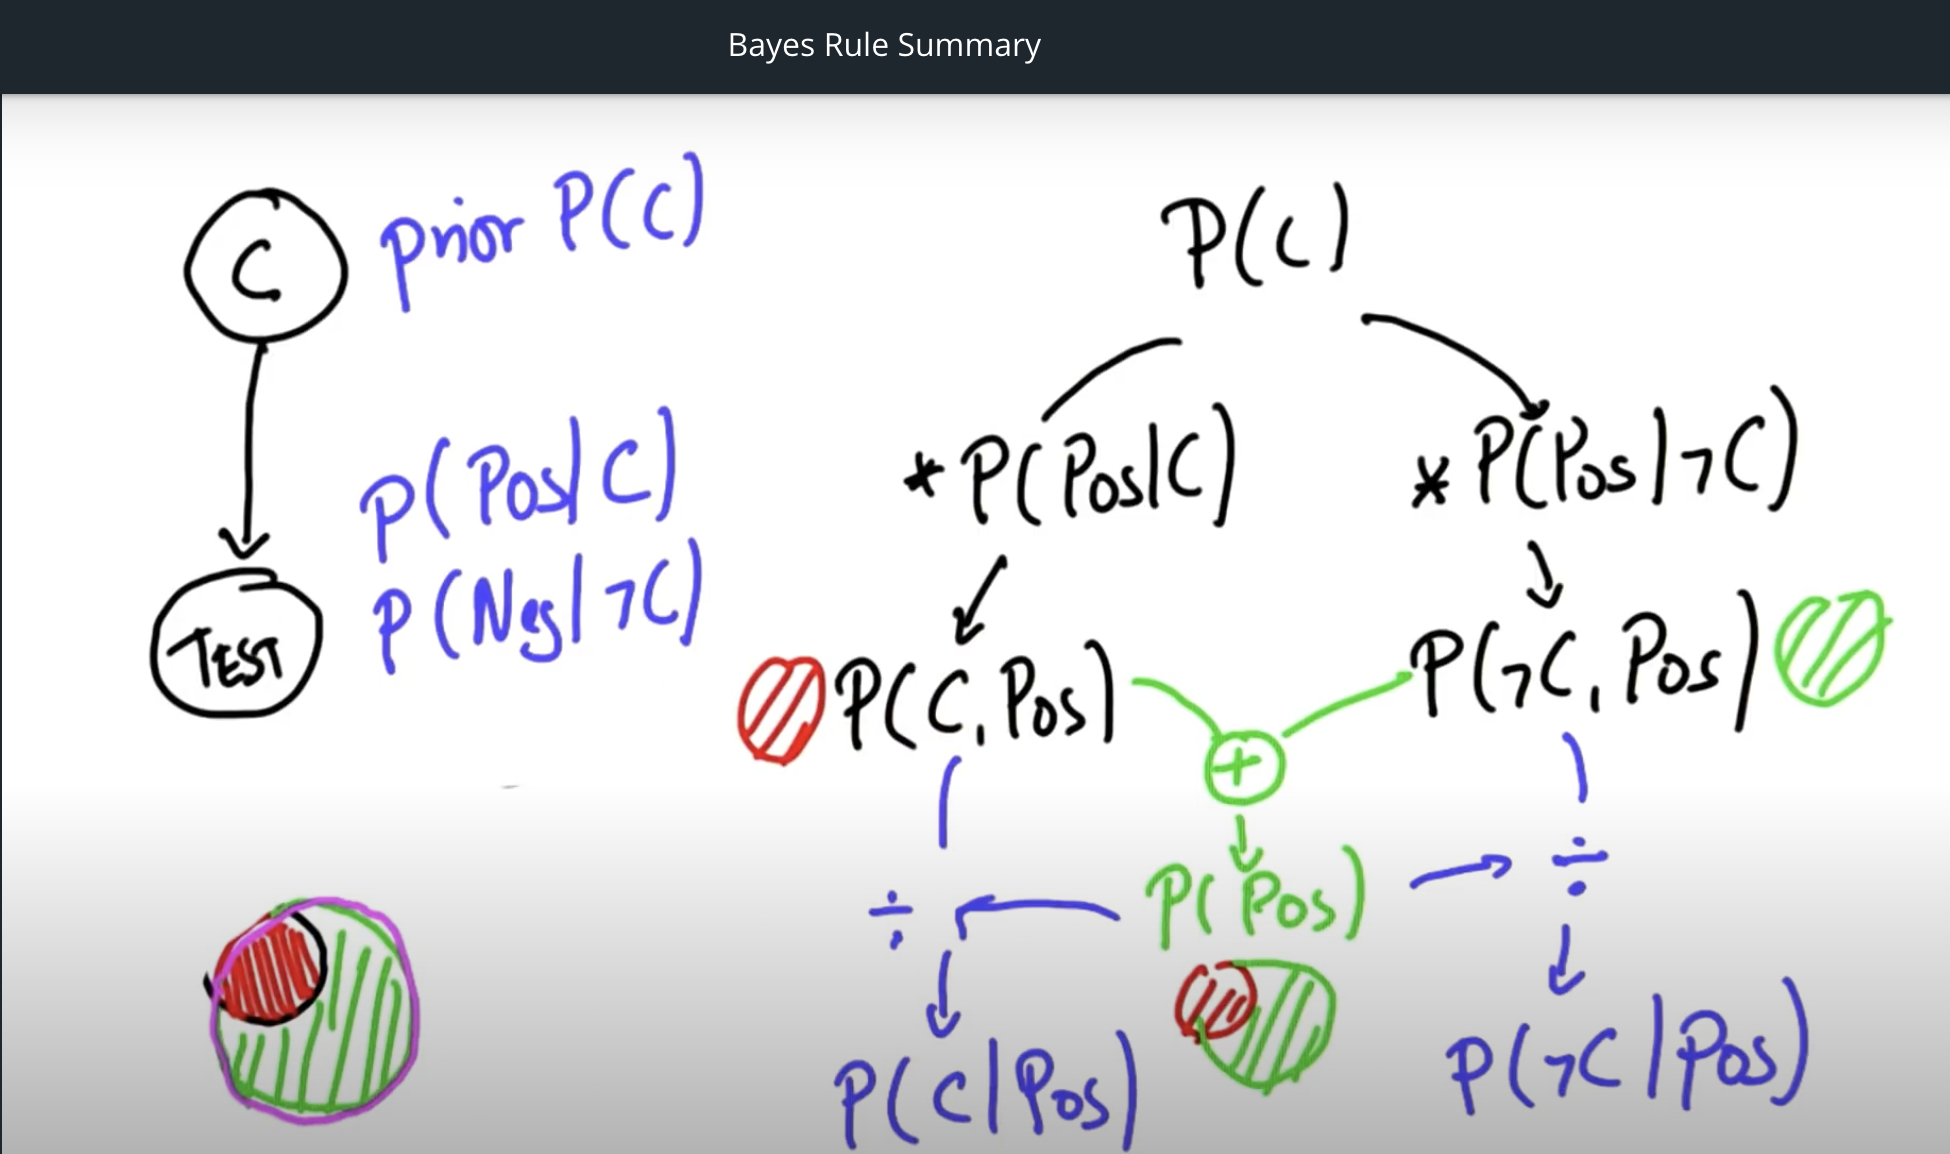 Bayes Rule Summary
C
prior P(C)
P(Pos|C)
P(Neg|¬C)
TEST
P(C)
*P(Pos|C)
*P(Pos|¬C)
P(C, Pos)
P(¬C, Pos)
+
P(Pos)
÷
÷
P(C|Pos)
P(¬C|Pos)